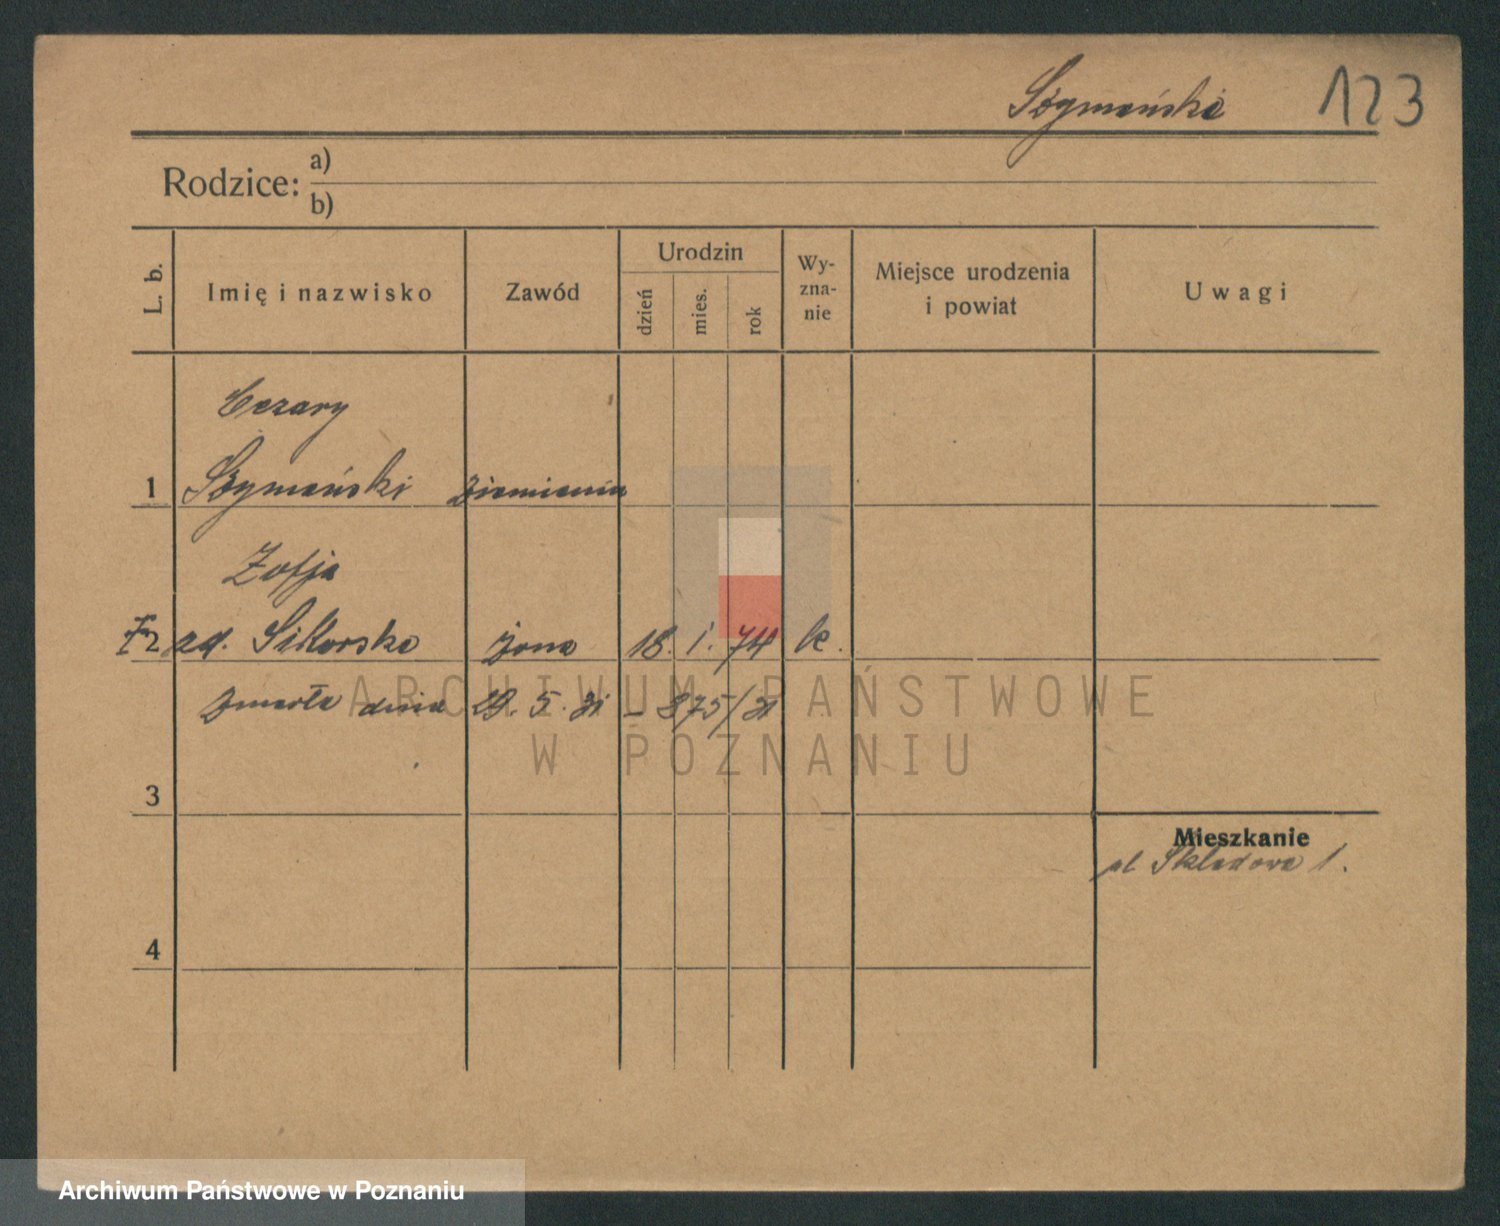 Szymański 123
Rodzice: a)
b)
L. b. Imię i nazwisko Zawód Urodzin dzień mies. rok Wyznanie Miejsce urodzenia i powiat Uwagi
Cezary
1 Szymański ziemianin
Zofja
2 zd. Sikorska żona 18. 1. 74 k.
zmarła dnia 29. 5. 31 – 875/31
ARCHIWUM PAŃSTWOWE
W POZNANIU
3
Mieszkanie
pl Składowa 1.
4
Archiwum Państwowe w Poznaniu